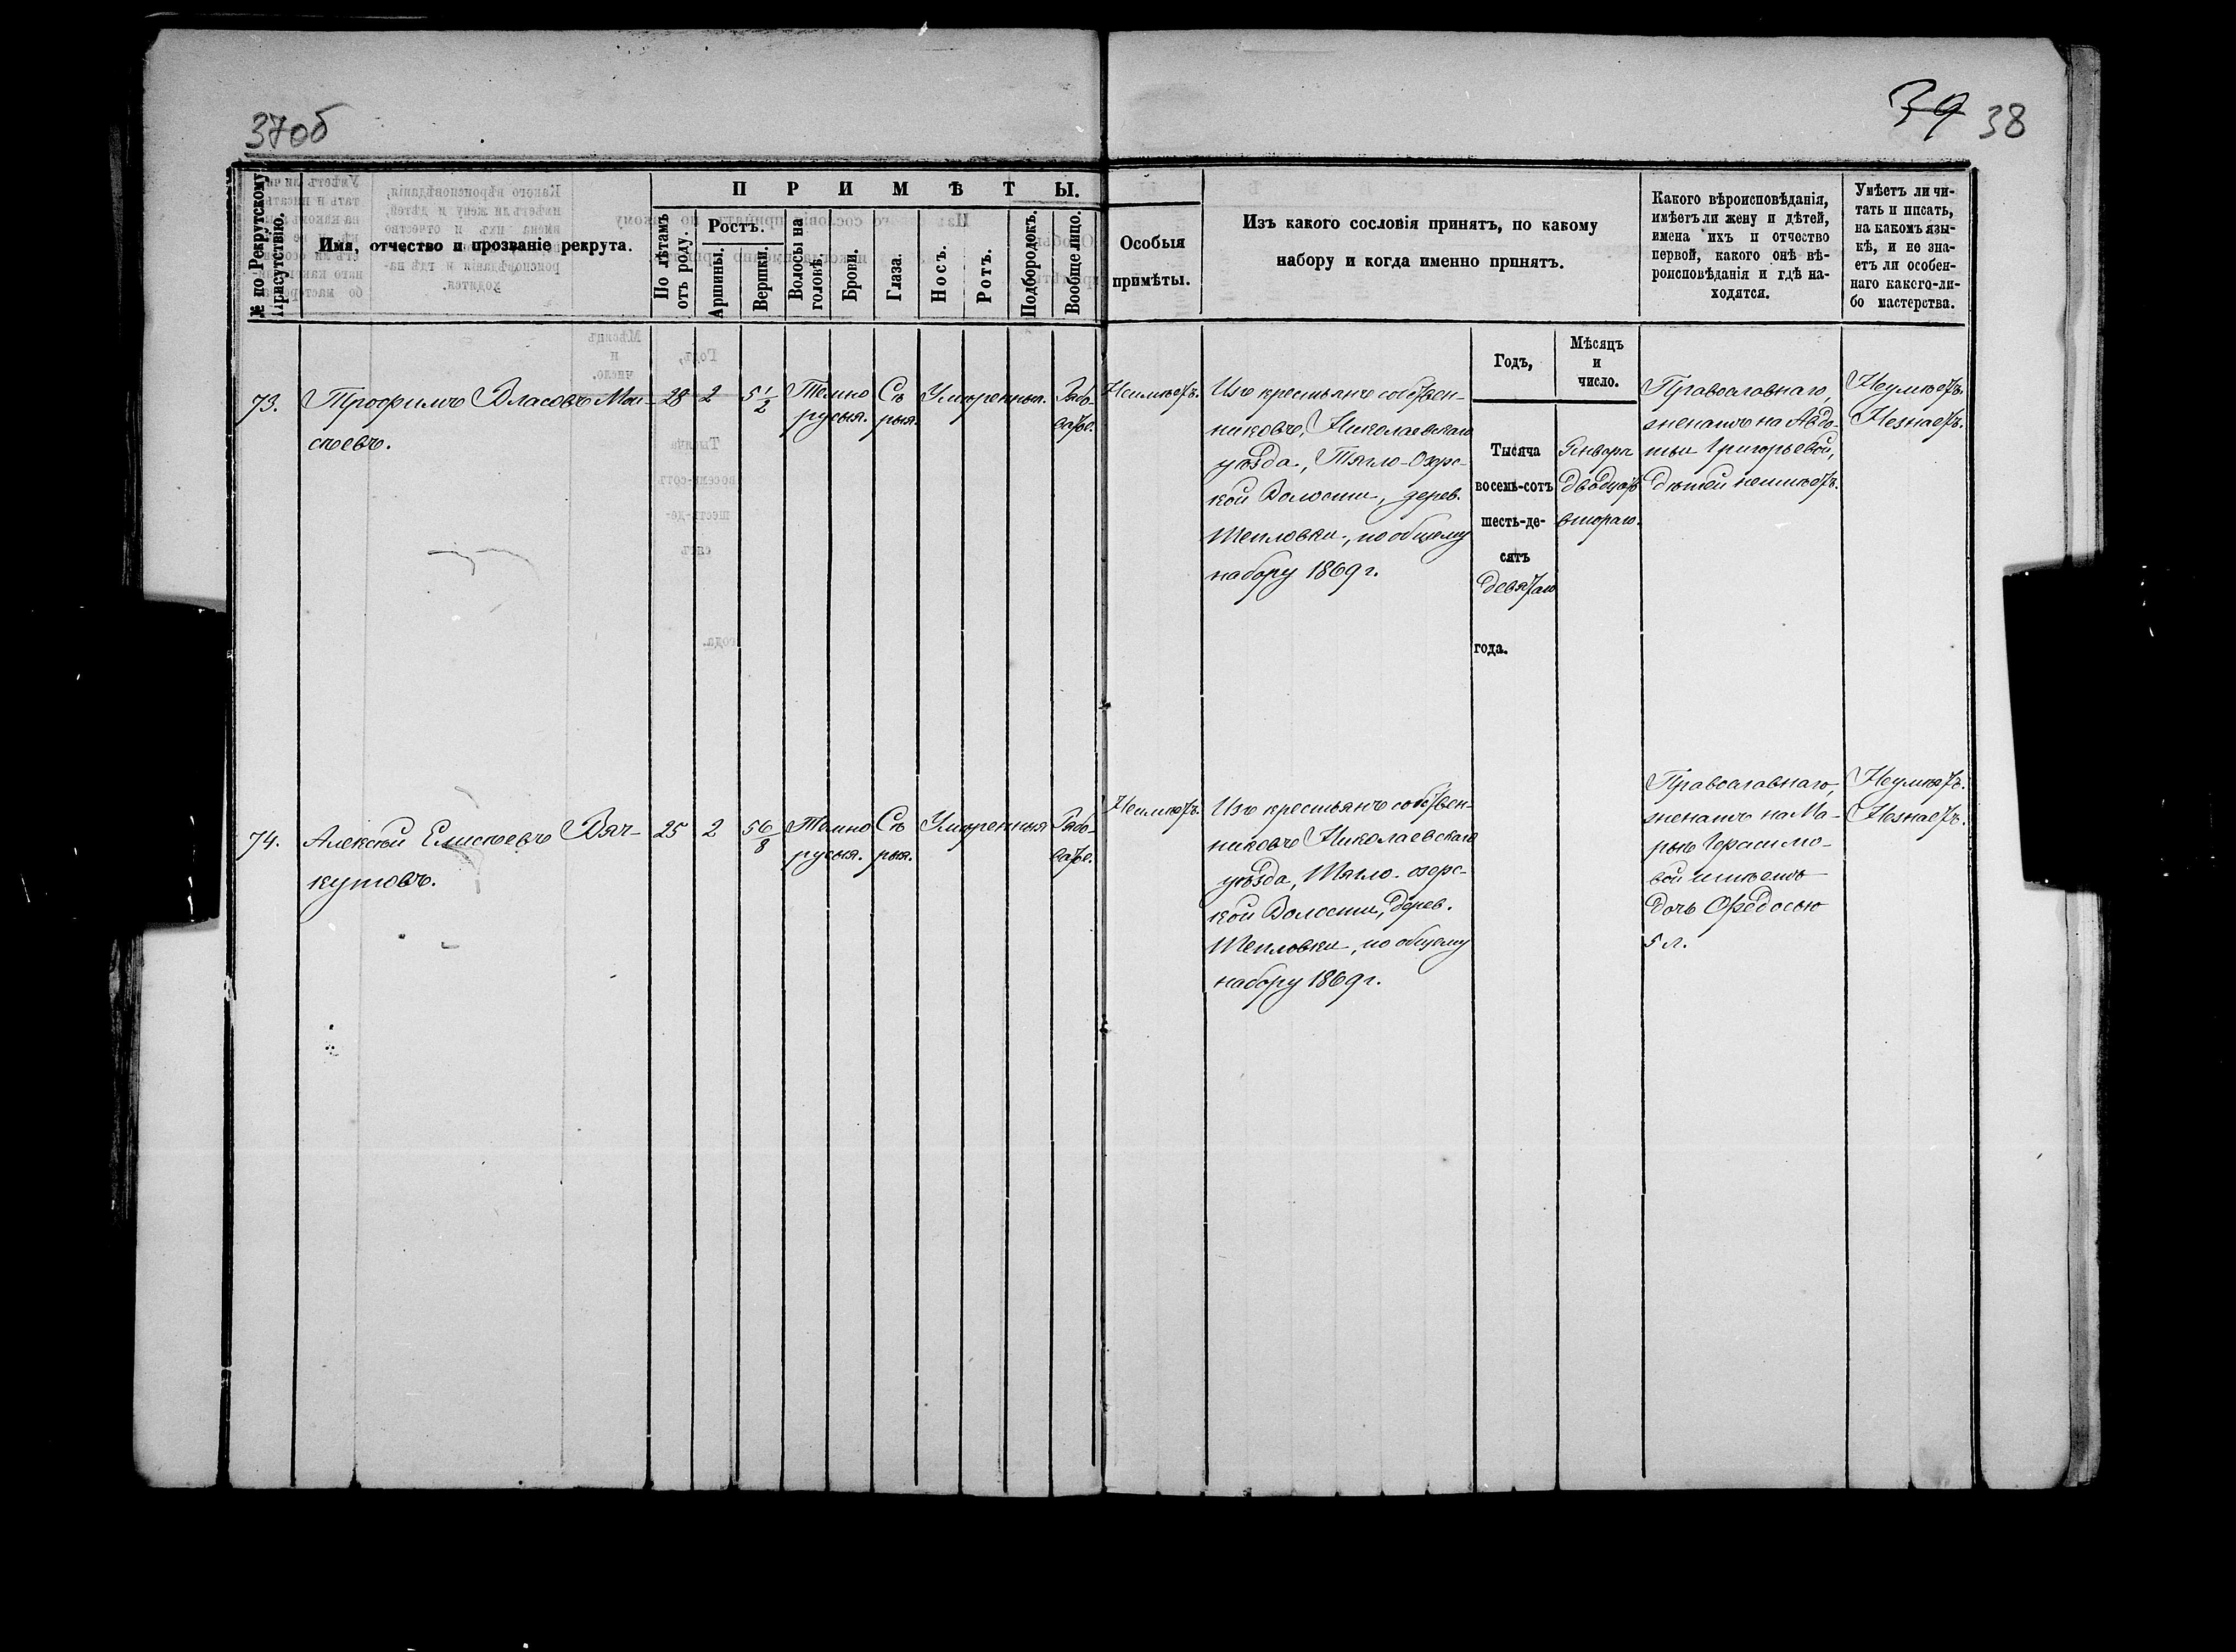 37об
39 38
№ по Рекрутскому Присутствію.
Имя, отчество и прозваніе рекрута.
ПРИМѢТЫ.
По лѣтамъ отъ роду.
Ростъ.
Аршины.
Вершки.
Волосы на головѣ.
Брови.
Глаза.
Носъ.
Ротъ.
Подбородокъ.
Вообще лицо.
Особыя
примѣты.
Изъ какого сословія принятъ, по какому
набору и когда именно принятъ.
Какого вѣроисповѣданія,
имѣетъ ли жену и дѣтей,
имена ихъ и отчество
первой, какого онѣ вѣ-
роисповѣданія и гдѣ на-
ходятся.
Умѣетъ ли чи-
тать и писать,
на какомъ язы-
кѣ, и не зна-
етъ ли особен-
наго какого-ли-
бо мастерства.
Годъ,
Мѣсяцъ
и
число.
73.
Трофимъ Власовъ Мои-
сѣевъ.
28
2
5 1/2
Темно
русыя.
Сѣ
рыя.
Умѣренныя.
Рябо
ватое.
Неимѣетъ.
Изъ крестьянъ собствен-
никовъ, Николаевскаго
уѣзда, Тягло-Озерс-
кой Волости, дерев.
Тепловки, по общему
набору 1869 г.
Тысяча
восемь-сотъ
шесть-де-
сятъ
девятаго
года.
Января
двадцать
втораго.
Православнаго,
женатъ на Авдо-
тьи Григорьевой,
дѣтей неимѣетъ.
Неумѣетъ.
Незнаетъ.
74.
Алексѣй Елисѣевъ Вяч-
кутовъ.
25
2
5 6/8
Темно
русыя.
Сѣ
рыя.
Умѣренныя
Рябо-
ватое.
Неимѣетъ.
Изъ крестьянъ собствен-
никовъ Николаевскаго
уѣзда, Тягло-озерс-
кой Волости, дерев.
Тепловки, по общему
набору 1869 г.
Православнаго,
женатъ на Ма-
рьѣ Герасимо-
вой имѣетъ
дочь Ѳедосью
5 л.
Неумѣетъ.
Незнаетъ.